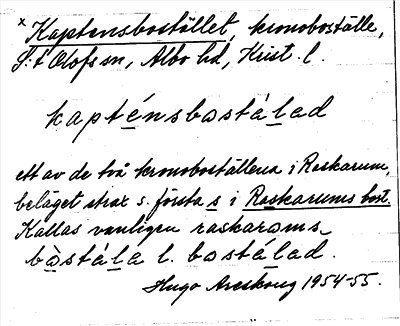 x Kaptensbostället, kronoboställe,
S:t Olofs sn, Albo hd, Krist. l.
kapténsbɑstálɑd
ett av de två kronoboställena i Raskarum,
beläget strax s. första s i Raskarums bost.
Kallas vanligen raskaroms
bɑ̀stálɑ l. bɑstálɑd.
Hugo Areskoug 1954-55.